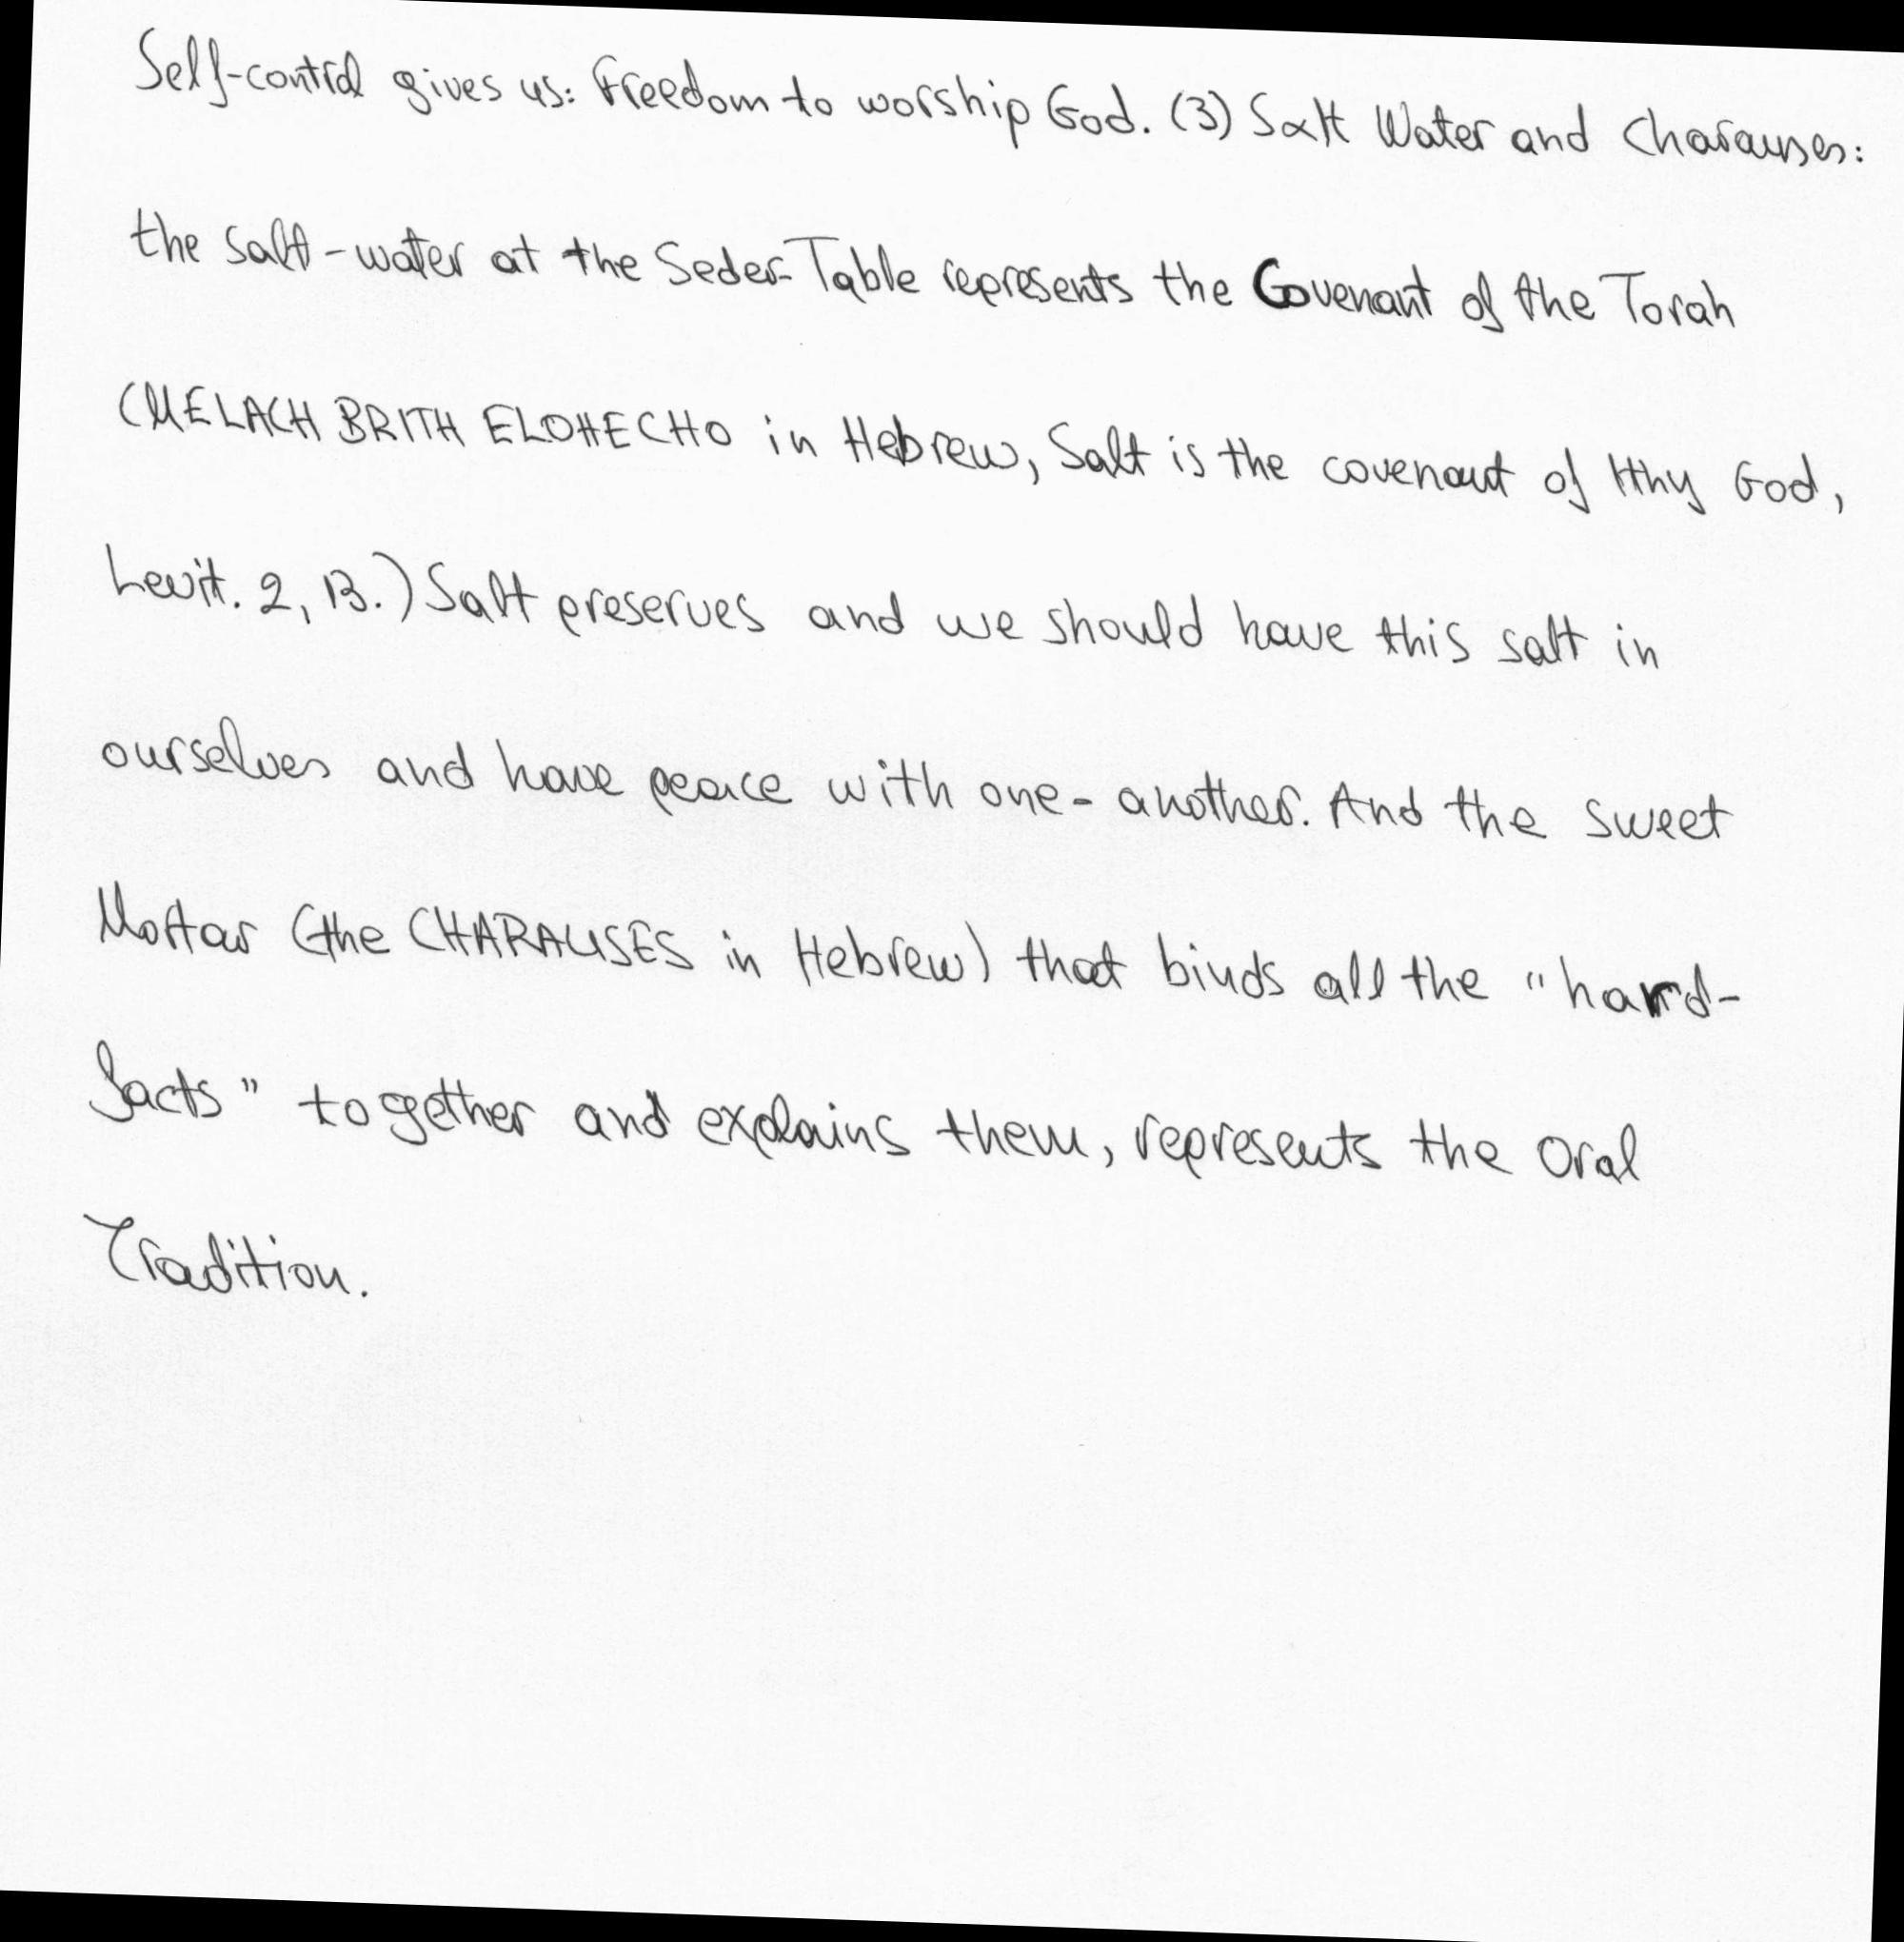 Self-control gives us: Freedom to worship God. (3) Salt Water and Charauses:
the Salt-water at the Seder-Table represents the Covenant of the Torah
(MELACH BRITH ELOHECHO in Hebrew, Salt is the covenant of thy God,
Levit. 2, 13.) Salt preserves and we should have this salt in
ourselves and have peace with one-another. And the sweet
Mortar (the CHARAUSES in Hebrew) that binds all the "hard-
facts" together and explains them, represents the Oral
Tradition.